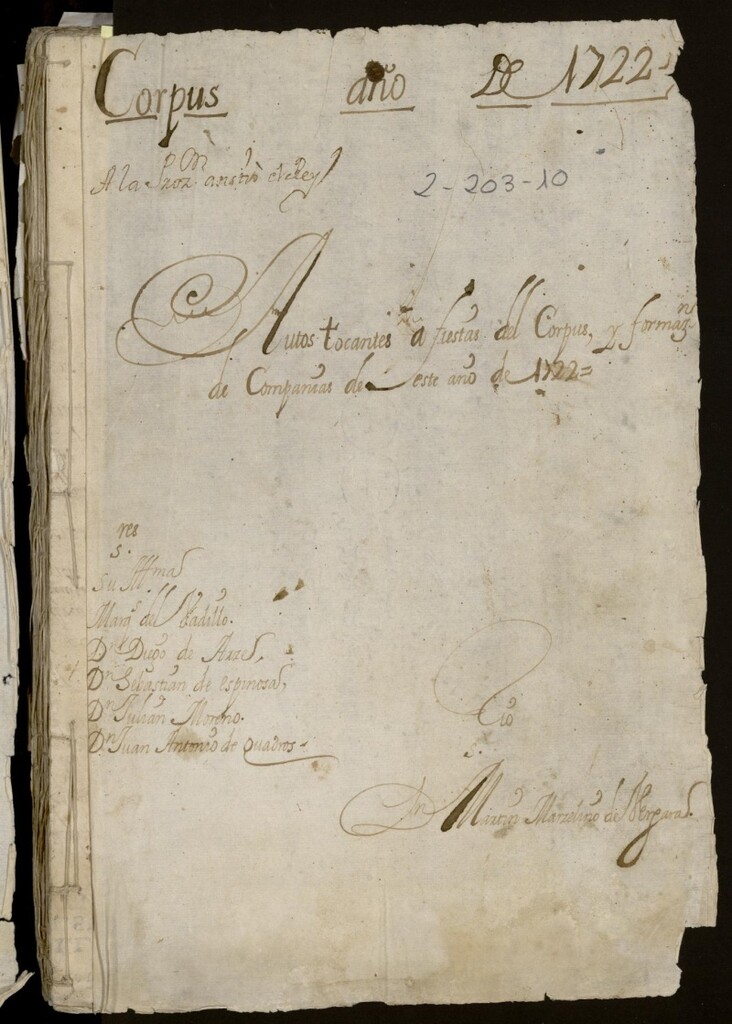 Corpus año De 1722=
A la Proz.on asistió el Rey
2-203-10
Autos tocantes a fiestas del Corpus, y formaz.n
de Compañias de este año de 1722=
res
S.
Su Illma
Marq.s del Vadillo.
D.n Diego de Arze,
D.n Sebastian de espinosa,
D.n Julian Moreno.
D.n Juan Antonio de Quadros=
s.rio
D.n Martin Marzelino de Vergara.